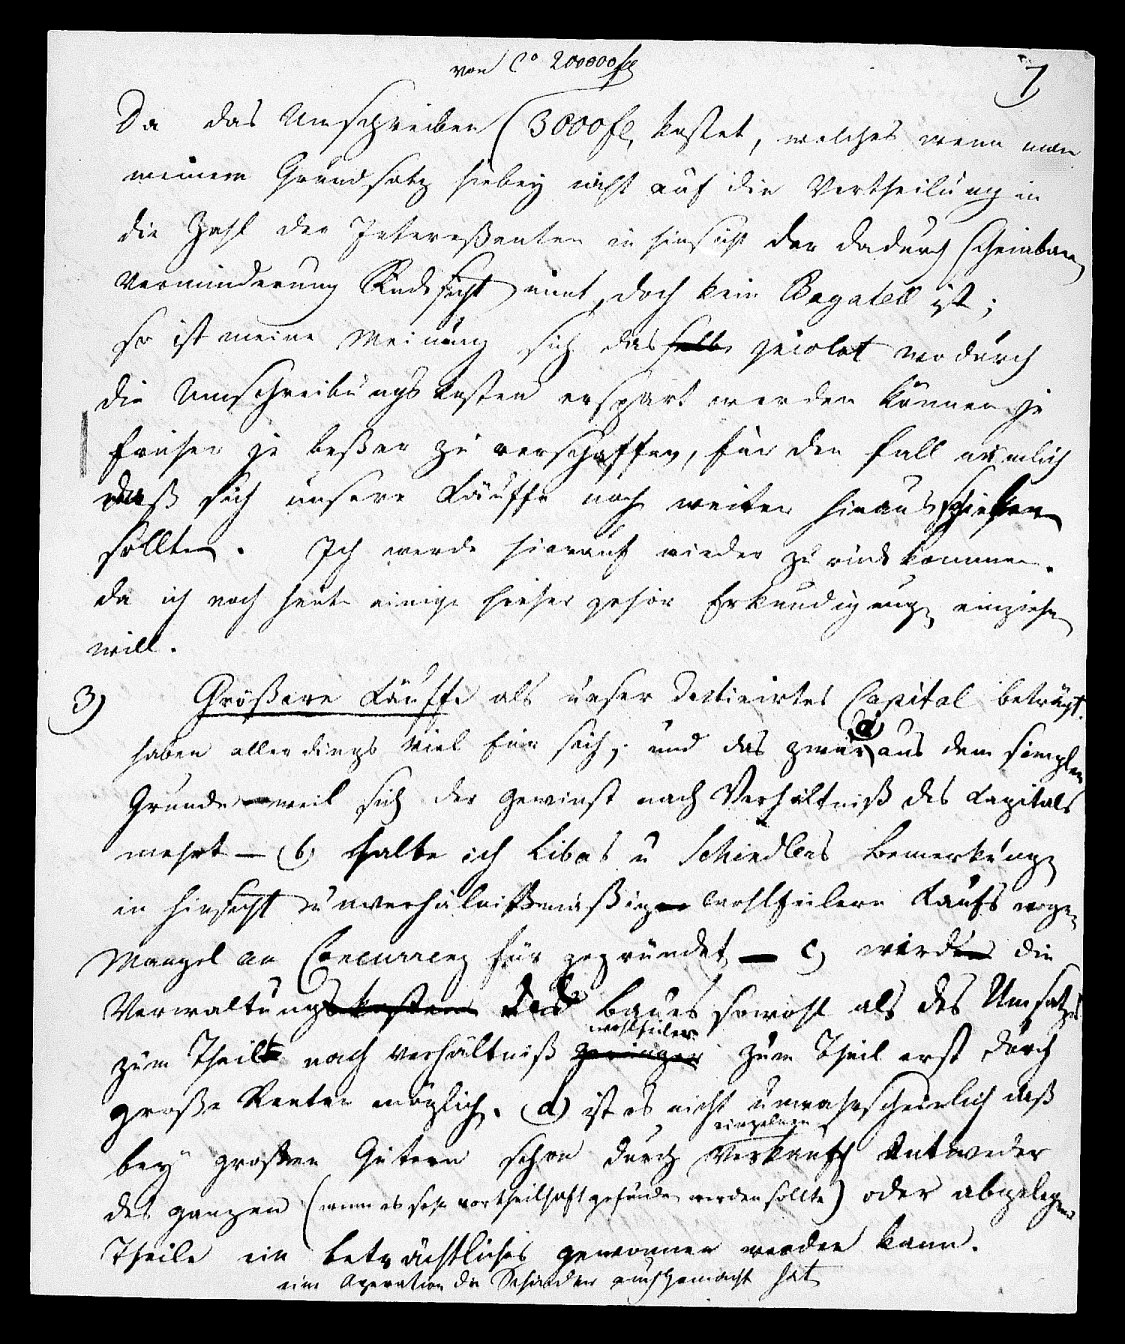 von Co 200000 fl
7
Da das Umschreiben (3000 fl, kostet, welches wenn man
meinem Grundsatz hiebey nicht auf die Vertheilung in
die Zahl der Interessenten in hinsicht der dadurch scheinbaren
Verminderung Rücksicht nimt, doch kein Bagatell ist;
so ist meine Meinung sich das wodurch
die Umschreibungskosten erspart werden können je
früher je beßer zu verschaffen, für den fall nämlich
daß sich unsere Käuffe noch weiter hinaus schieben
sollten. Ich werde hierauf wieder zurück kommen.
da ich noch heute einige hieher gehör Erkundigungen einziehen
will.
3) Größere Käuffe als unser destinirtes Capital beträgt.
haben allerdings viel für sich; und das zwar a) aus dem simplen
Grunde weil sich der Gewinst nach Verhältniß des Kapitals
mehrt — (b) halte ich Libas u Schindlers Bemerkungen
in hinsicht unverhältnißmäßig wohlfeilern Kaufs wegen
Mangel an Concurrenz für gegründet — c) wird die
Verwaltungskosten des Baues sowohl als des Umsatzes
wohlfeiler
zum Theil nach Verhältniß geringer zum Theil erst durch
große Renten möglich. (d) ist es nicht unwahrscheinlich daß
einzelnen
bey großen Gütern schon durch Verkauf entweder
des ganzen (wenn es sehr vortheilhaft gefunden werden sollte) oder abgelegener
Theile ein beträchtliches gewonnen werden kann.
eine Operation die Schindler auch gemacht hat